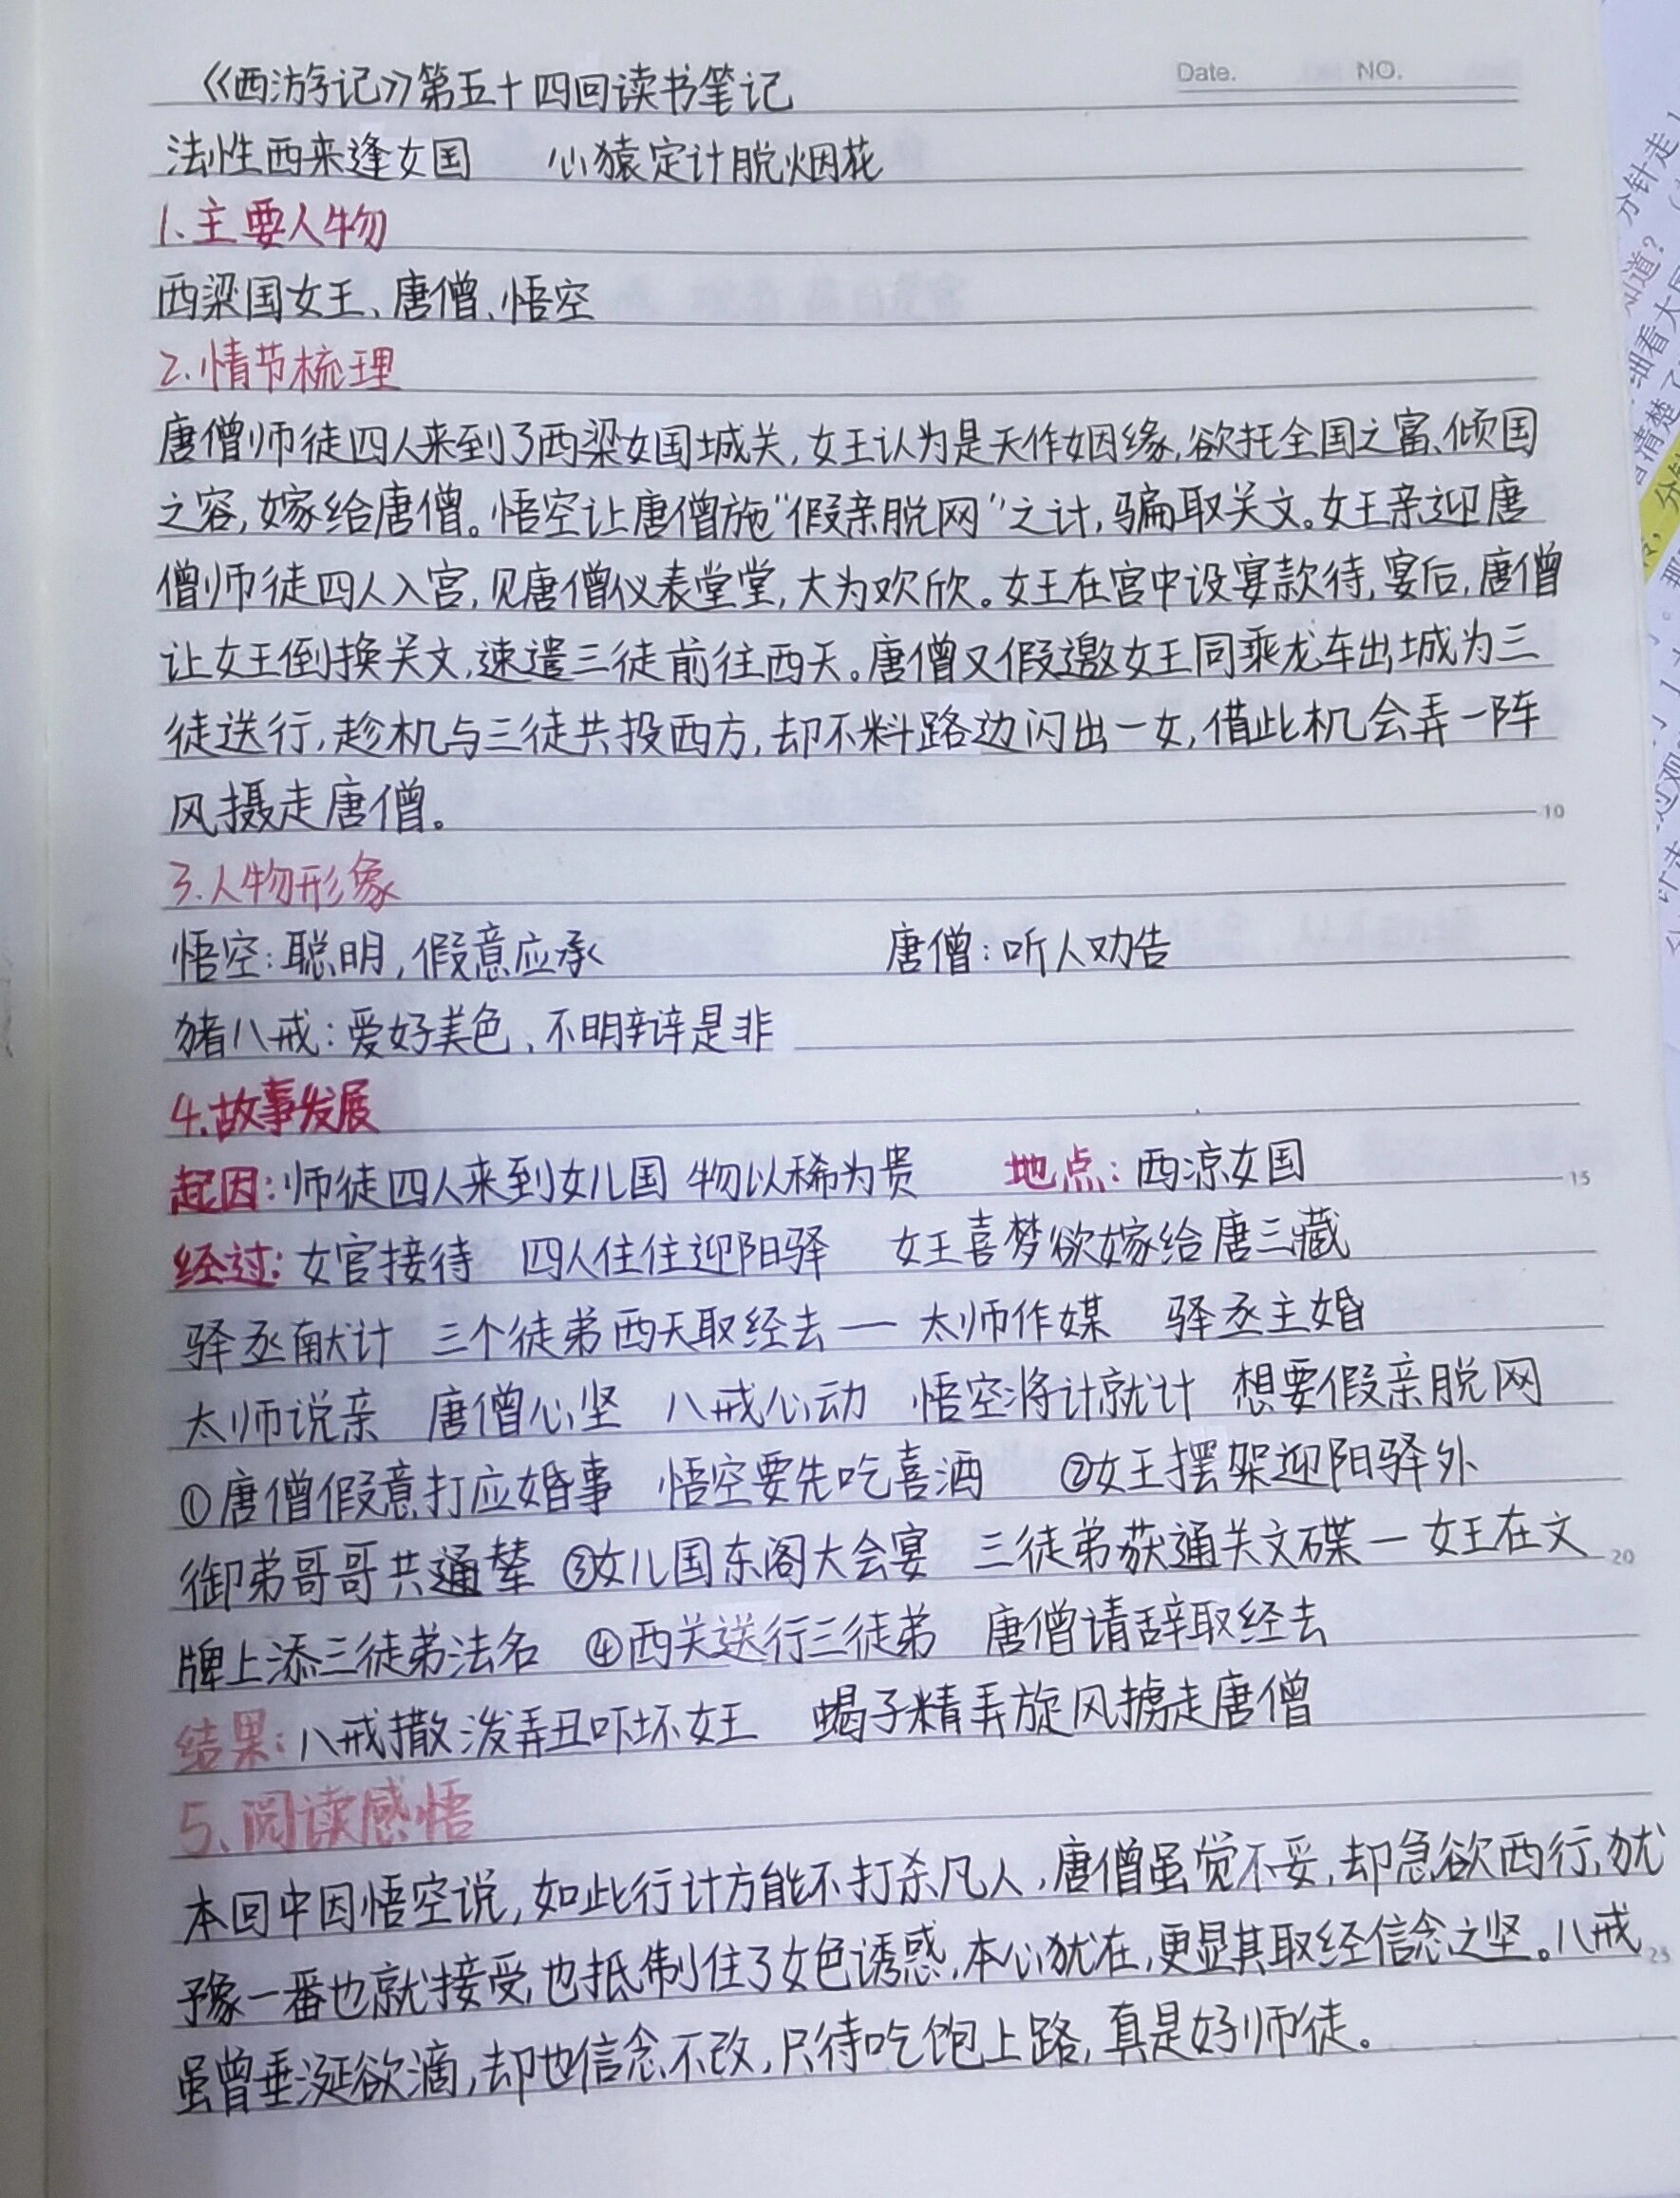 Date.    NO.
《西游记》第五十四回读书笔记
法性西来逢女国    心猿定计脱烟花
1、主要人物
西梁国女王、唐僧、悟空
2.情节梳理
唐僧师徒四人来到了西梁女国城关,女王认为是天作姻缘,欲托全国之富、倾国
之容,嫁给唐僧。悟空让唐僧施“假亲脱网”之计,骗取关文。女王亲迎唐
僧师徒四人入宫,见唐僧仪表堂堂,大为欢欣。女王在宫中设宴款待,宴后,唐僧
让女王倒换关文,速遣三徒前往西天。唐僧又假邀女王同乘龙车出城为三
徒送行,趁机与三徒共投西方,却不料路边闪出一女,借此机会弄一阵
风摄走唐僧。
10
3.人物形象
悟空:聪明,假意应承    唐僧:听人劝告
猪八戒:爱好美色、不明辩是非
4.故事发展
起因:师徒四人来到女儿国 物以稀为贵    地点:西凉女国
15
经过:女官接待  四人住住迎阳驿  女王喜梦欲嫁给唐三藏
驿丞献计  三个徒弟西天取经去— 太师作媒  驿丞主婚
太师说亲  唐僧心坚  八戒心动  悟空将计就计  想要假亲脱网
①唐僧假意打应婚事  悟空要先吃喜酒    ②女王摆架迎阳驿外
御弟哥哥共通辇 ③女儿国东阁大会宴  三徒弟获通关文碟—女王在文
20
牌上添三徒弟法名  ④西关送行三徒弟  唐僧请辞取经去
结果:八戒撒泼弄丑吓坏女王  蝎子精弄旋风掳走唐僧
5、阅读感悟
本回中因悟空说,如此行计方能不打杀凡人,唐僧虽觉不妥,却急欲西行,犹
豫一番也就接受,也抵制住了女色诱惑,本心犹在,更显其取经信念之坚。八戒
25
虽曾垂涎欲滴,却也信念不改,只待吃饱上路,真是好师徒。
分针走1
知道?
细看大
清楚了